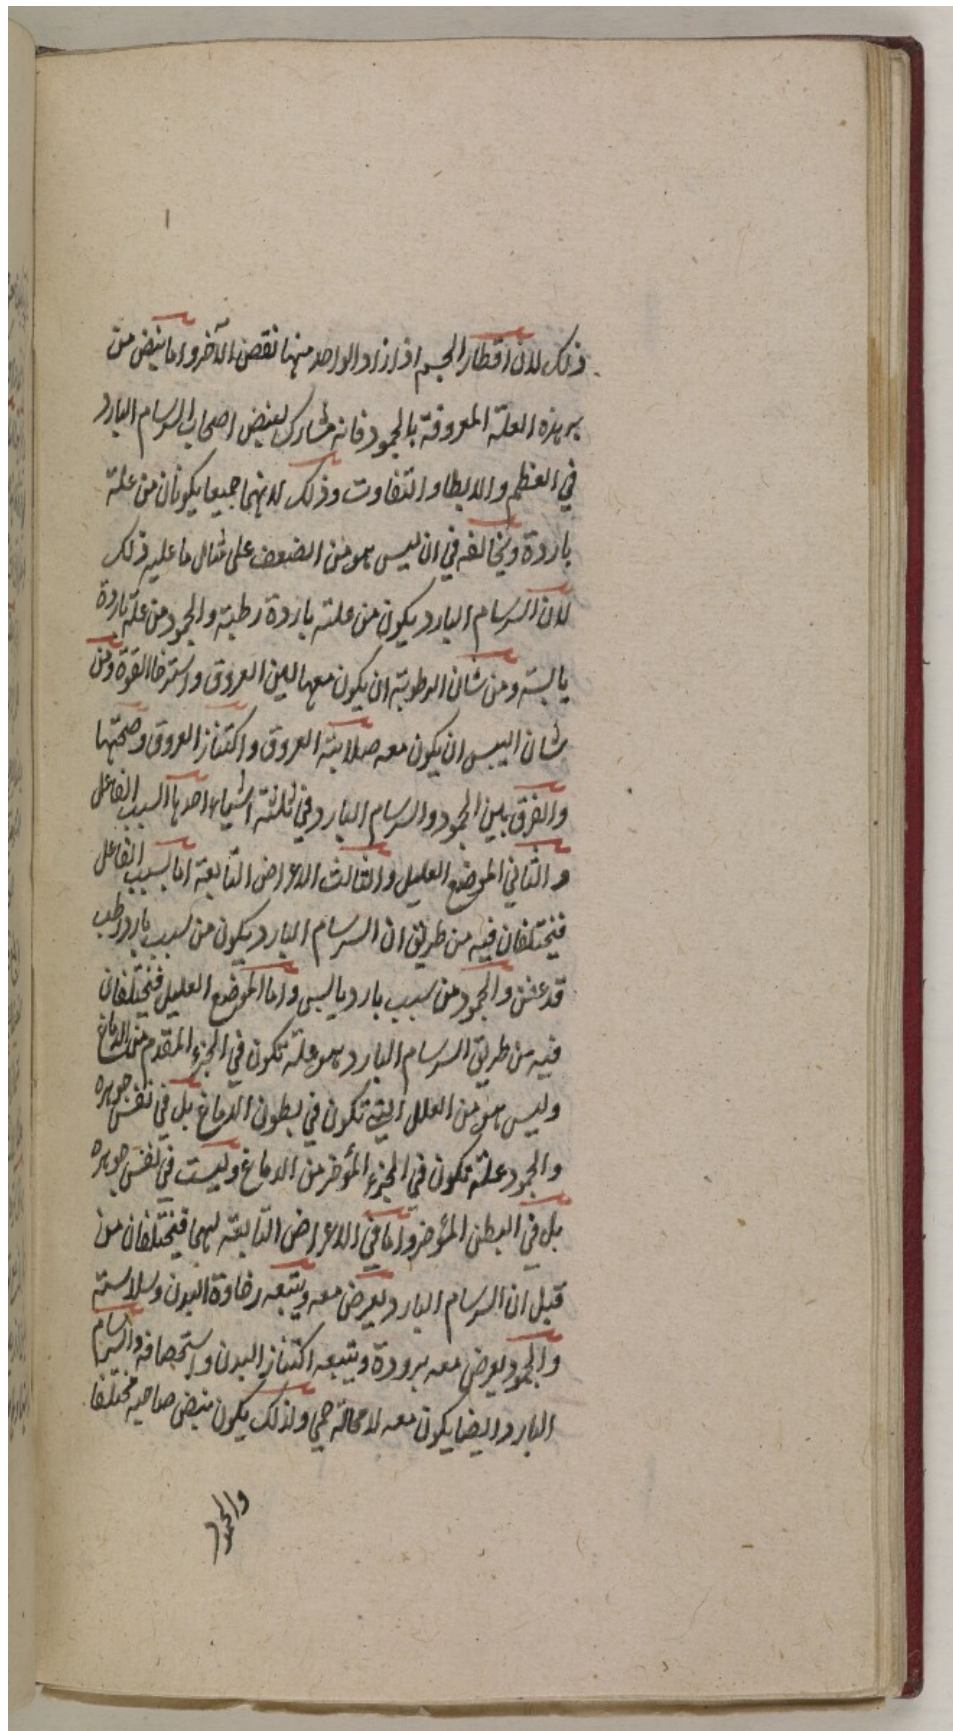 ذلك لان اقطار الجسم اذا زاد الواحد منها نقص الآخر واما نبض من
به هذه العلة المعروفة بالجمود فانه مشارك لنبض اصحاب السرسام البارد
في العظم والابطا والتفاوت وذلك لانهما جميعا يكونان من علة
باردة ويخالفه في ان ليس هو من الضعف على مثال ما عليه ذلك
لان السرسام البارد يكون من علة باردة رطبة والجمود من علة باردة
يابسة ومن شان الرطوبة ان يكون معها لين العروق واسترخا القوة ومن
شان اليبس ان يكون معه صلابة العروق واكتناز العروق وصحتها
والفرق بين الجمود والسرسام البارد في ثلثة اشياء احدها السبب الفاعل
والثاني الموضع العليل والثالث الاعراض التابعة اما السبب الفاعل
فيختلفان فيه من طريق ان السرسام البارد يكون من سبب بارد رطب
قد عفن والجمود من سبب بارد يابس واما الموضع العليل فيختلفان
فيه من طريق السرسام البارد هو علة تكون في الجزء المقدم من الدماغ
وليس هو من العلل التي تكون في بطون الدماغ بل في نفس جوهره
والجمود علة تكون في الجزء المؤخر من الدماغ وليست في نفس جوهره
بل في البطن المؤخر واما في الاعراض التابعة لهما فيختلفان من
قبل ان السرسام البارد يعرض معه ويتبعه رخاوة البدن وسلاسته
والجمود يعرض معه برودة ويتبعه اكتناز البدن واستحصافه والسرسام
البارد ايضا يكون معه لا محالة حمى ولذلك يكون نبض صاحبه مختلفا
والجمود